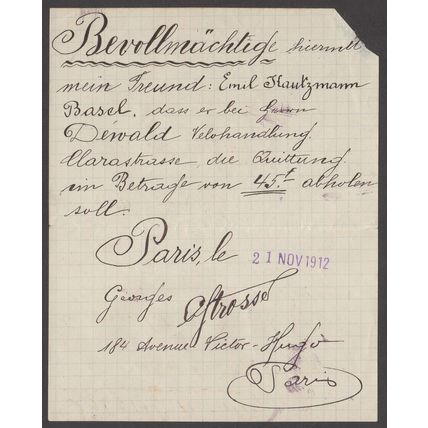 Bevollmächtige hiermit
mein Freund: Emil Kautzmann
Basel, dass er bei Herrn
Déwald Velohandlung
Clarastrasse, die Quittung
im Betrage von 45.f abholen
soll.
Paris, le 21 NOV 1912
Georges Strossel
184 Avenue Victor-Hugo
Paris